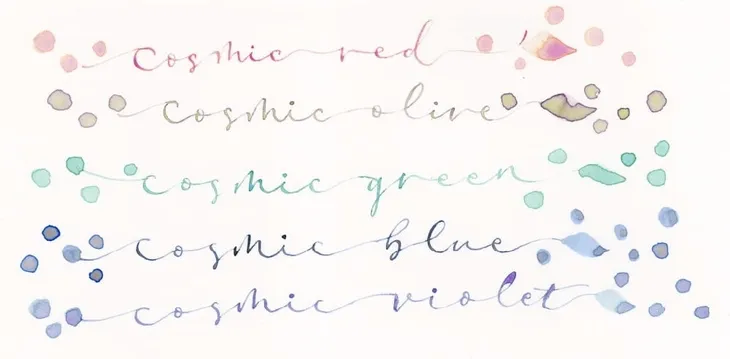 cosmic red
cosmic olive
cosmic green
cosmic blue
cosmic violet